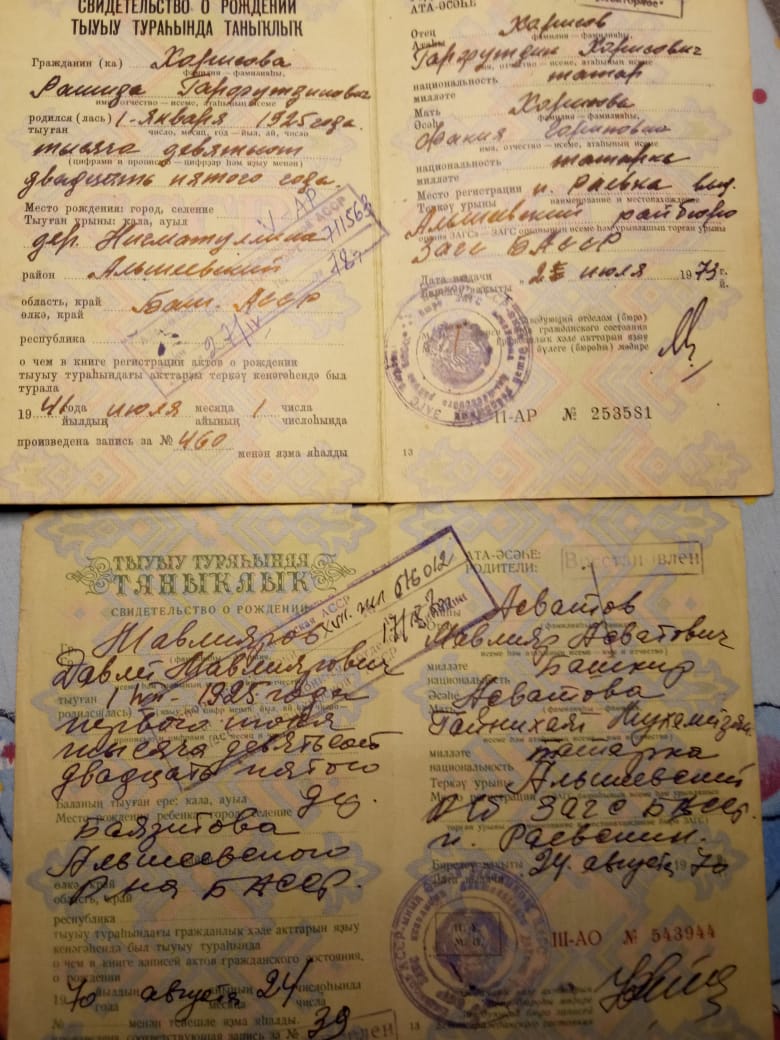 СВИДЕТЕЛЬСТВО О РОЖДЕНИИ
ТЫУЫУ ТУРАҺЫНДА ТАНЫҠЛЫҠ
Гражданин (ка) Харисова
фамилия — фамилияһы,
Рашида Гарфутдинович
имя, отчество — исеме, атаһының исеме
родился (лась) 1 января 1925 года.
тыуған число, месяц, год — йыл, ай, число
тысяча девятьсот
(цифрами и прописью — цифрҙар һәм яҙыу менән)
двадцать пятого года.
Место рождения: город, селение
Тыуған урыны: ҡала, ауыл
дер. Нигматуллина
район Альшеевский
область, край Баш. АССР
өлкә, край
республика
о чем в книге регистрации актов о рождении
тыуыу тураһындағы акттарҙы теркәү кенәгәһендә был
турала
1941 года июля месяца 1 числа
йылдың айының числоһында
произведена запись за № 460
менән яҙма яһалды
V-АР 711563
АССР
27/IV 78г
АТА-ӘСӘҺЕ
Отец Харисов
Атаһы фамилия — фамилияһы,
Гарфутдин Харисович
имя, отчество — исеме, атаһының исеме
национальность татар
милләте
Мать Харисова
Әсәһе фамилия — фамилияһы,
имя, отчество — исеме, атаһының исеме
национальность татарка
милләте
Место регистрации п. Раевка
Теркәү урыны наименование и местонахождение
Альшеевский райбюро
органа ЗАГСа — ЗАГС органының исеме һәм урынлашҡан урыны
Загс БАССР
Дата выдачи июля 1973 г.
й.
Заведующий отделом (бюро)
гражданского состояния
хәле акттарын яҙыу
бүлеге (бюроһы) мөдире
II-АР № 253581
13
ТЫУЫУ ТУРАҺЫНДА
ТАНЫҠЛЫҠ
СВИДЕТЕЛЬСТВО О РОЖДЕНИИ
АССР
XVII. 616012
Шавлияров
Давлет Шавлиярович
1 1925 года
родился(лась)
первого июня
тысяча девятьсот
двадцать пятого
Баланың тыуған ере: ҡала, ауыл дер.
Место рождения ребенка: город, селение
Баязитова
Альшеевского
өлкә, край р-на БАССР.
область, край
республика
тыуыу тураһындағы гражданлыҡ хәле акттарын яҙыу
кенәгәһендә был тыуыу тураһында
о чем в книге записей актов гражданского состояния,
о рождении
1970 йылдың августа айының 24 числоһында
года месяца числа
№ менән тейешле яҙма яһалды.
произведена соответствующая запись за № 39
АТА-ӘСӘҺЕ:
РОДИТЕЛИ:
Восстановлен
Асватов
Шавлияр Асватович
исеме һәм атаһының исеме — имя и отчество
милләте Башкир
национальность
Әсәһе Асватова
Мать
милләте татарка
национальность
Теркәү урыны Альшеевский
Место регистрации
ЗАГС БАССР.
п. Раевский.
Биреләү ваҡыты 24 августа 1970
Дата выдачи
М. О.
III-АО № 543944
13